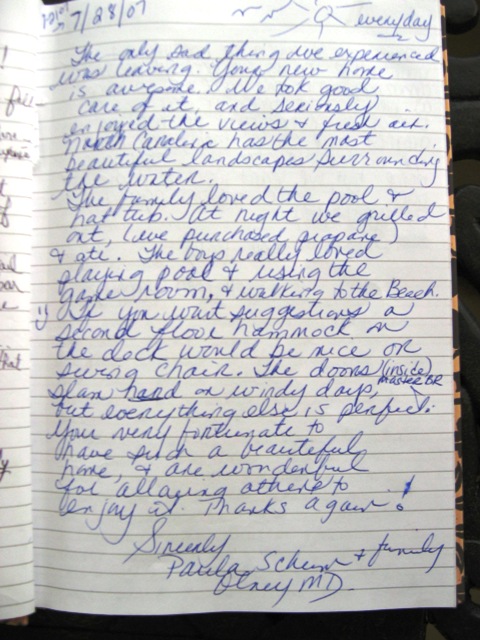 7/28/07
everyday
The only sad thing we experienced
was leaving. Your new home
is awesome. We took good
care of it, and seriously
enjoyed the views & fresh air.
North Carolina has the most
beautiful landscapes surrounding
the water.
The family loved the pool &
hot tub. At night we grilled
out, (we purchased propane)
& ate. The boys really loved
playing pool & using the
game room, & walking to the Beach.
If you want suggestions a
second floor hammock on
the dock would be nice or
swing chair. The doors (inside)
master BR
slam hard on windy days,
but everything else is perfect.
Your very fortunate to
have such a beautiful
home, & are wonderful
for allowing others to
enjoy it. Thanks again!
Sincerely
Paula + family
Olney MD